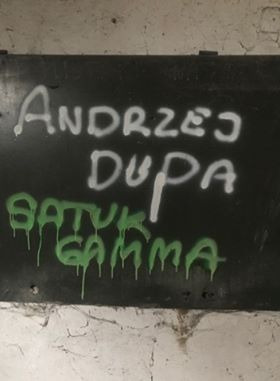 ANDRZEJ
DUPA
SATUK
GAMMA